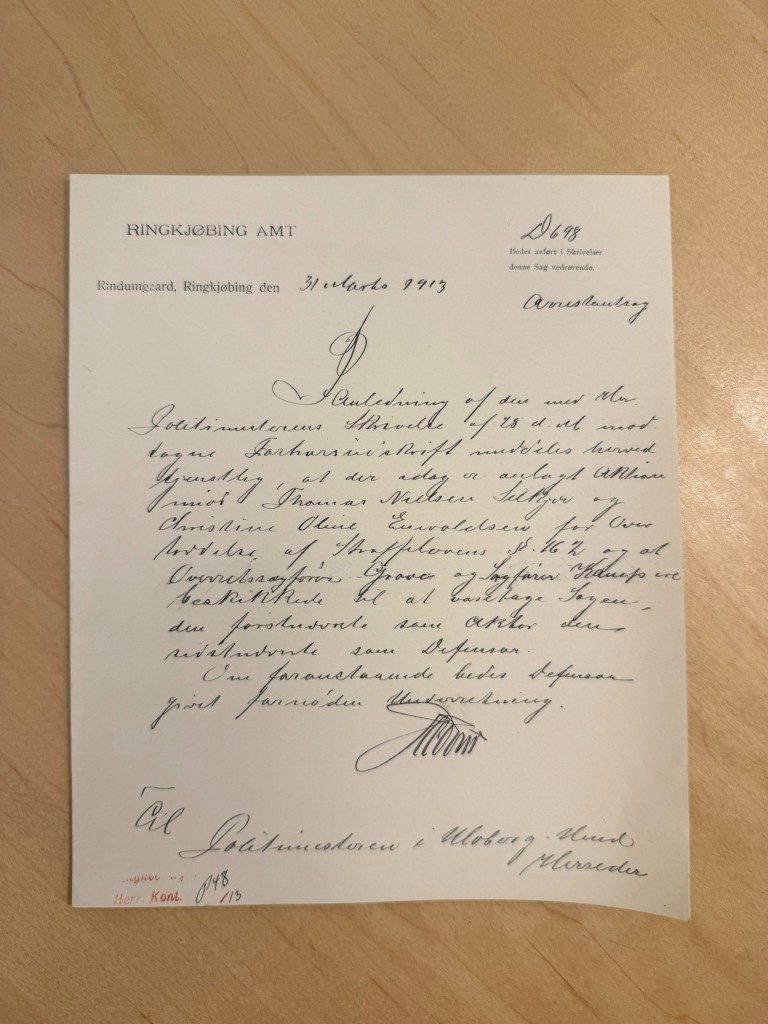 RINGKJØBING AMT
D 698
Bedes anført i Skrivelser
denne Sag vedrørende.
Rindumgaard, Ringkjøbing den 31 Marts 1913
Arrestantsag
I Anledning af den med Hr.
Politimesterens Skrivelse af 28 d. M. mod
tagne Forhørsudskrift meddeles herved
tjenstlig, at der idag er anlagt Aktion
mod Thomas Nielsen Selkjær og
Christine Oline Enevoldsen for Over
trædelse af Straffelovens §. 162 og at
Overretssagfører Grove og Sagfører Kamp ere
beskikkede til at varetage Sagen,
den førstnævnte som Aktor den
sidstnævnte som Defensor.
Om foranstaaende bedes Defensor
givet fornøden Underretning.
Til
Politimesteren i Ulborg-Hind
Herreder
Herr. Kont. P48
/13